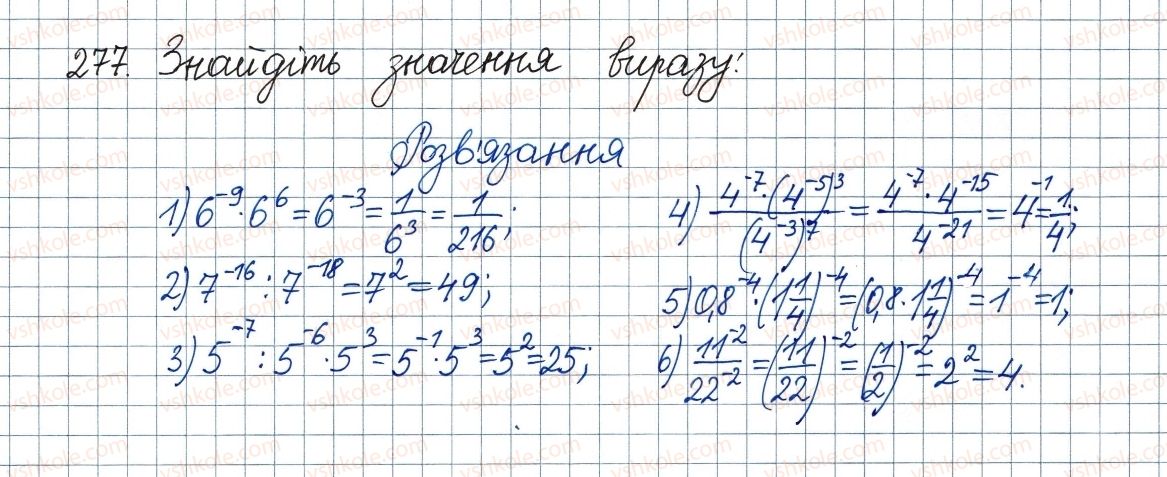 277. Знайдіть значення виразу:
Розв'язання
1) 6⁻⁹·6⁶ = 6⁻³ = 1/6³ = 1/216;
2) 7⁻¹⁶ : 7⁻¹⁸ = 7² = 49;
3) 5⁻⁷ : 5⁻⁶·5³ = 5⁻¹·5³ = 5² = 25;
4) (4⁻⁷·(4⁻⁵)³)/((4⁻³)⁷) = (4⁻⁷·4⁻¹⁵)/(4⁻²¹) = 4⁻¹ = 1/4;
5) 0,8⁻⁴·(1 1/4)⁻⁴ = (0,8·1 1/4)⁻⁴ = 1⁻⁴ = 1;
6) 11⁻²/22⁻² = (11/22)⁻² = (1/2)⁻² = 2² = 4.